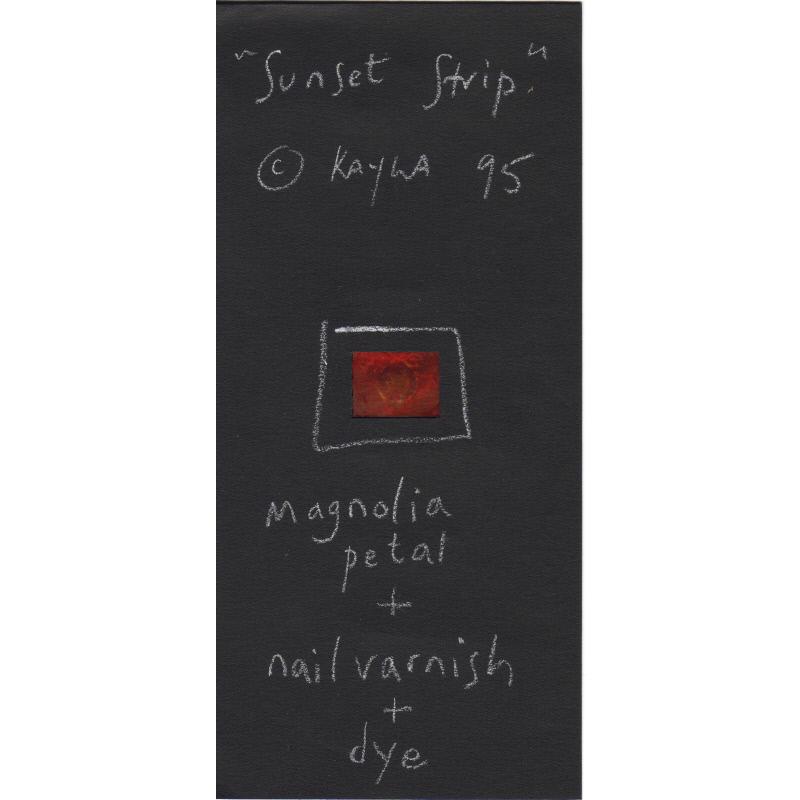 "Sunset Strip."
© KAYLA 95
magnolia
petal
+
nail varnish
+
dye